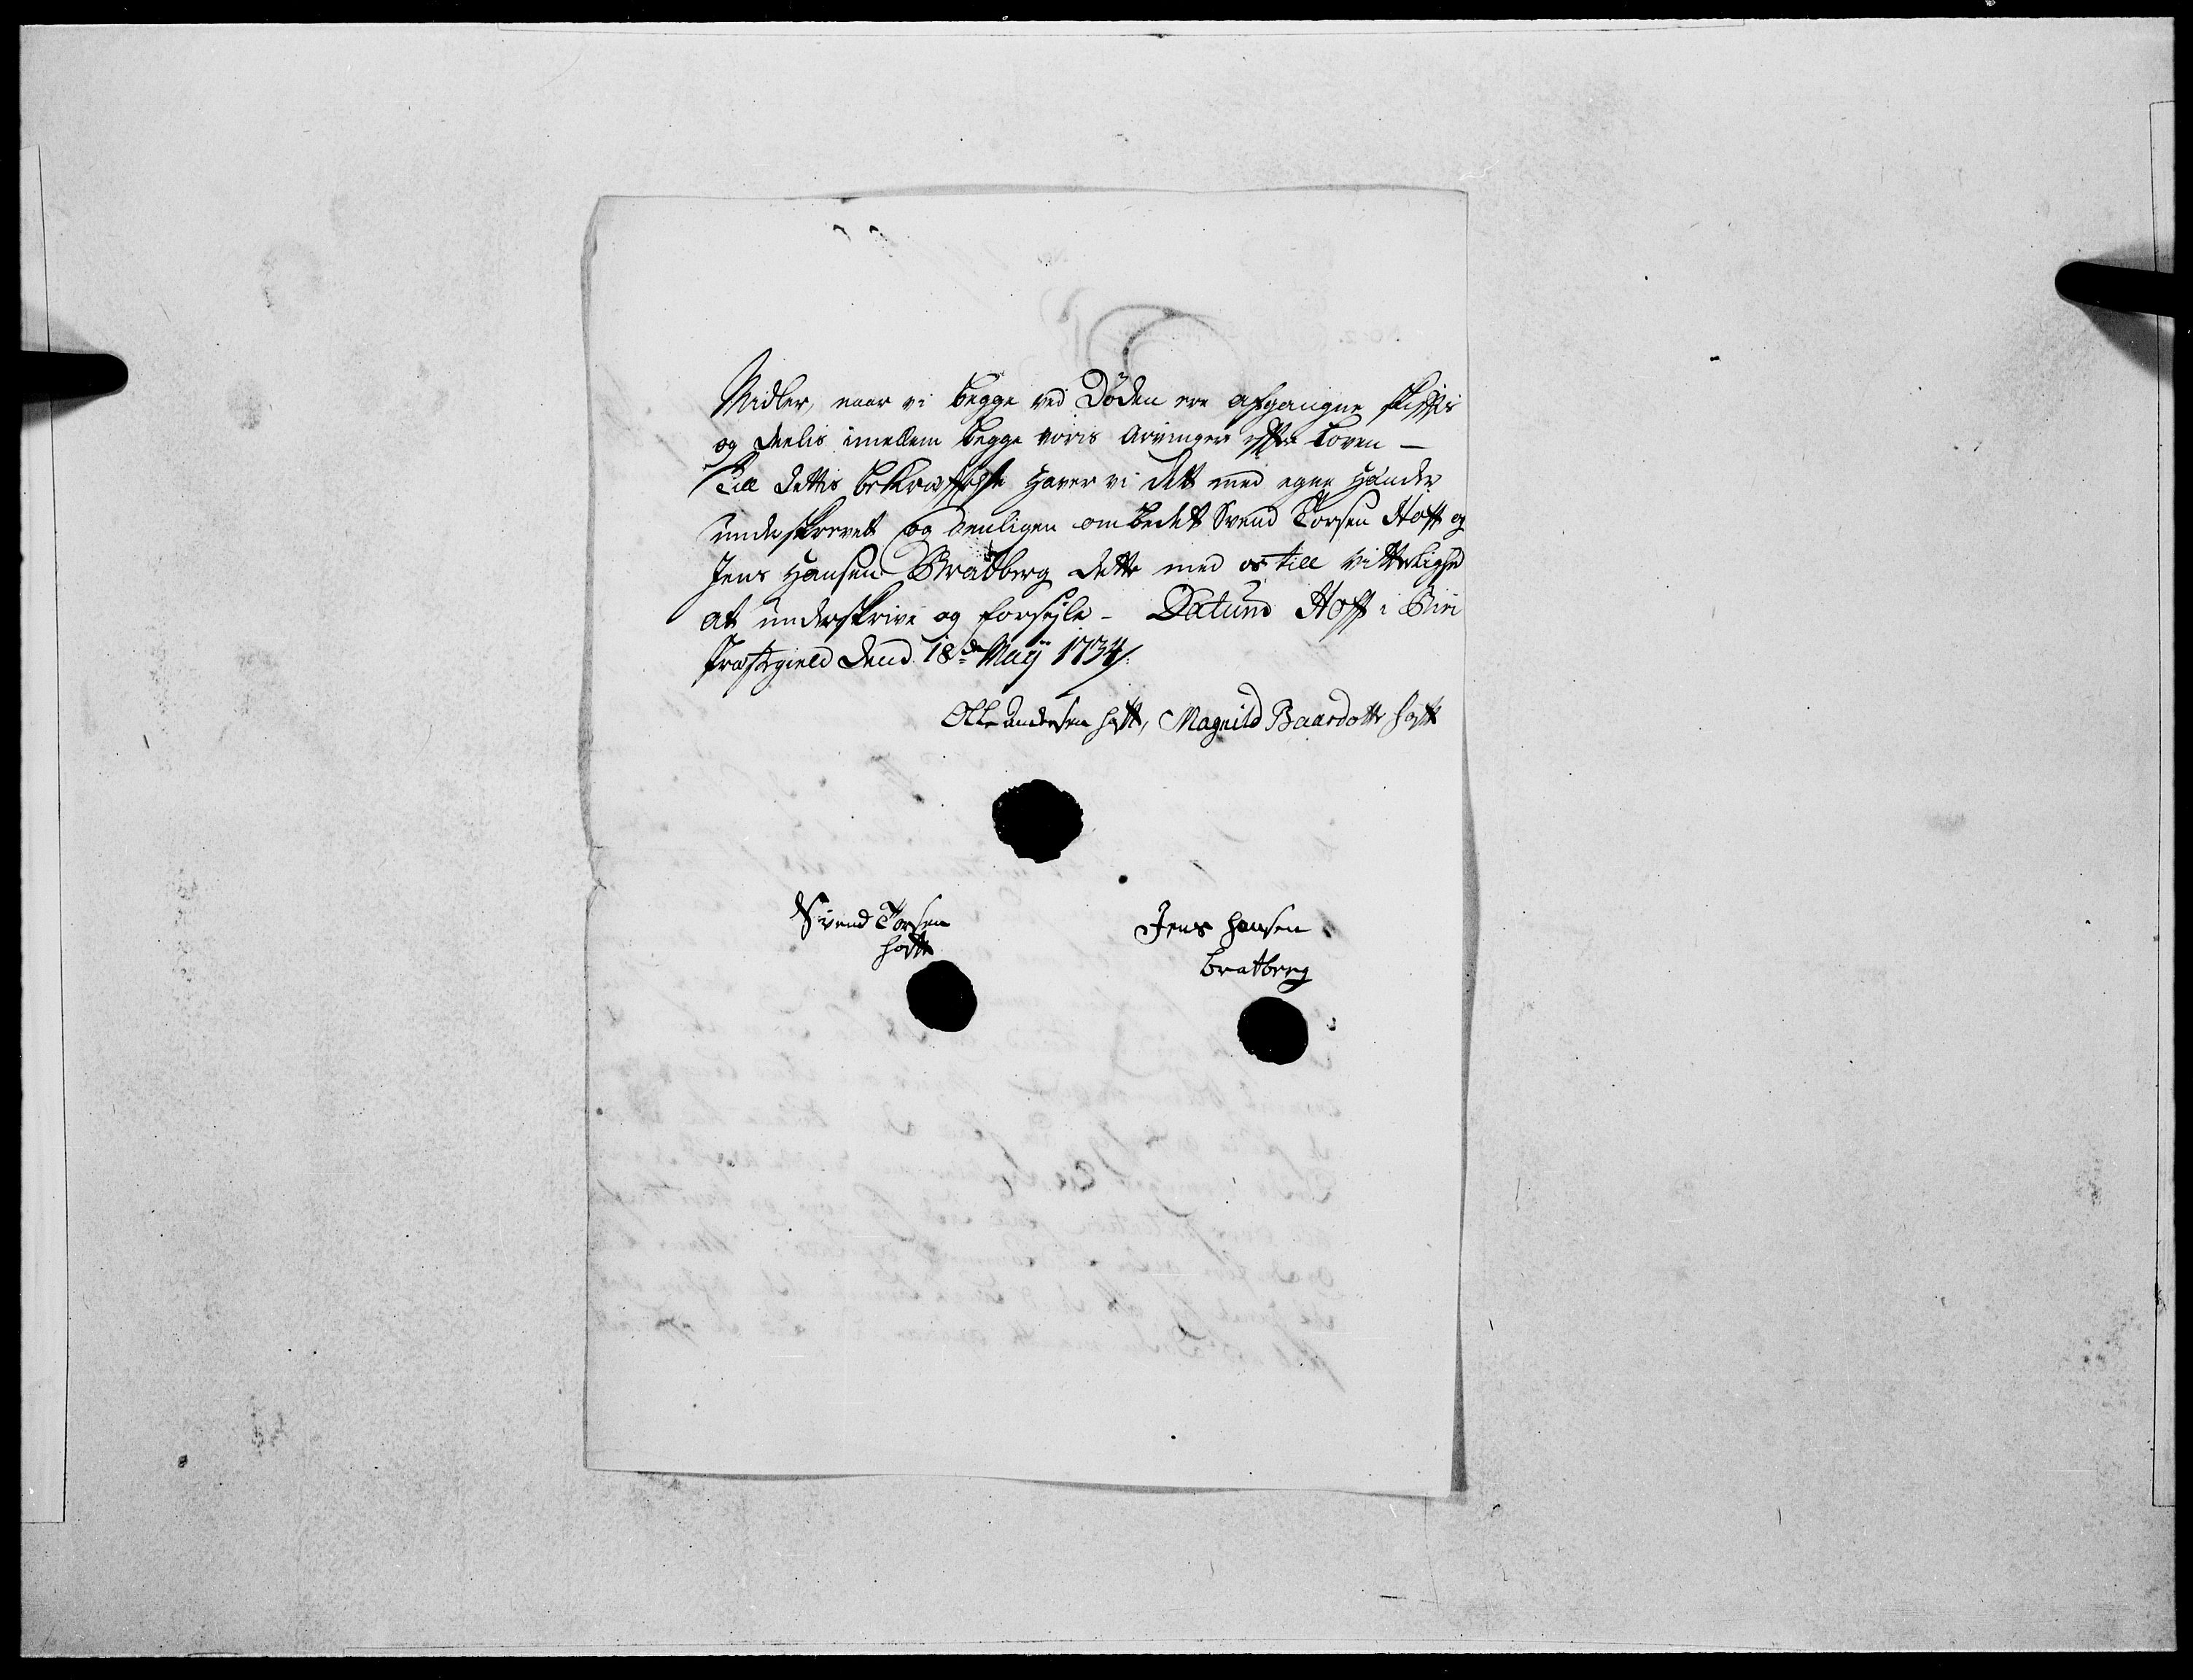 Midler, naar vi begge ved Døden ere afgangne skifftis
og deelis imellem begge voris Arvinger effter Loven —
Till dettis bekræfftelse haver vi dett med egne Hænder
underskrevet og venligen ombedet Svend Torsen Hoff og
Jens Hansen Bratberg dette med os till vitterlighed
at underskrive og forseyle - Datum Hoff i Biri
Præstegield dend 18de Maij 1734/:
Olle Andersen hoff, Magnild Baardotter hoff
Svend Torsen
hoff
Jens Hansen
bratberg